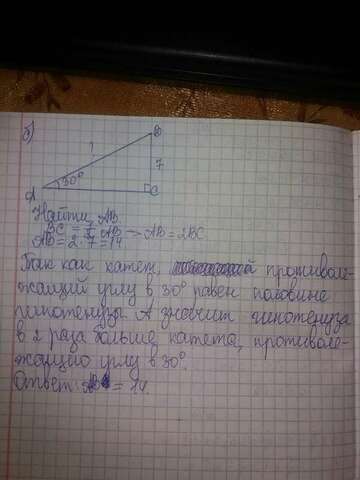 б)
B
?
7
30°
A
C
Найти AB
BC = ½ AB → AB = 2BC
AB = 2·7 = 14
Так как катет, противоле-
жащий углу в 30° равен половине
гипотенузы. А значит гипотенуза
в 2 раза больше катета, противоле-
жащию углу в 30°.
Ответ: AB = 14.